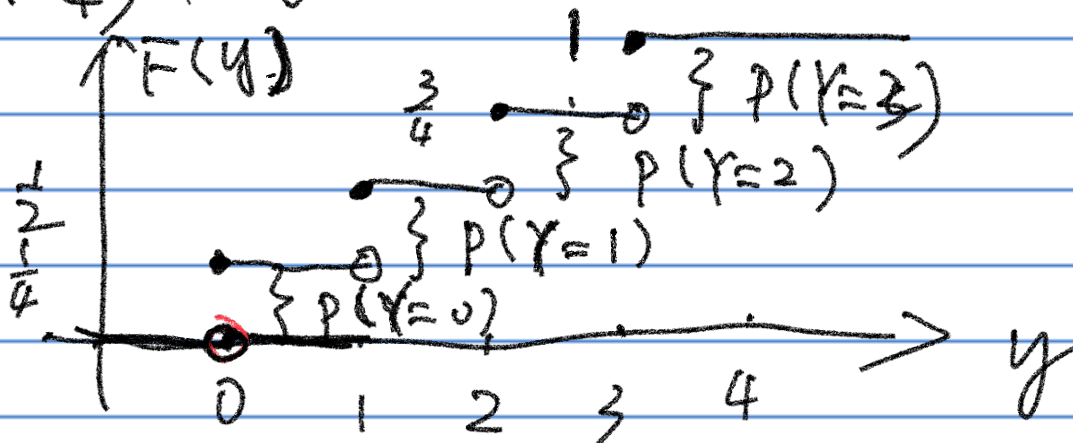 F(y)
1
} P(Y=3)
3/4
} P(Y=2)
1/2
} P(Y=1)
1/4
} P(Y=0)
0 1 2 3 4 y